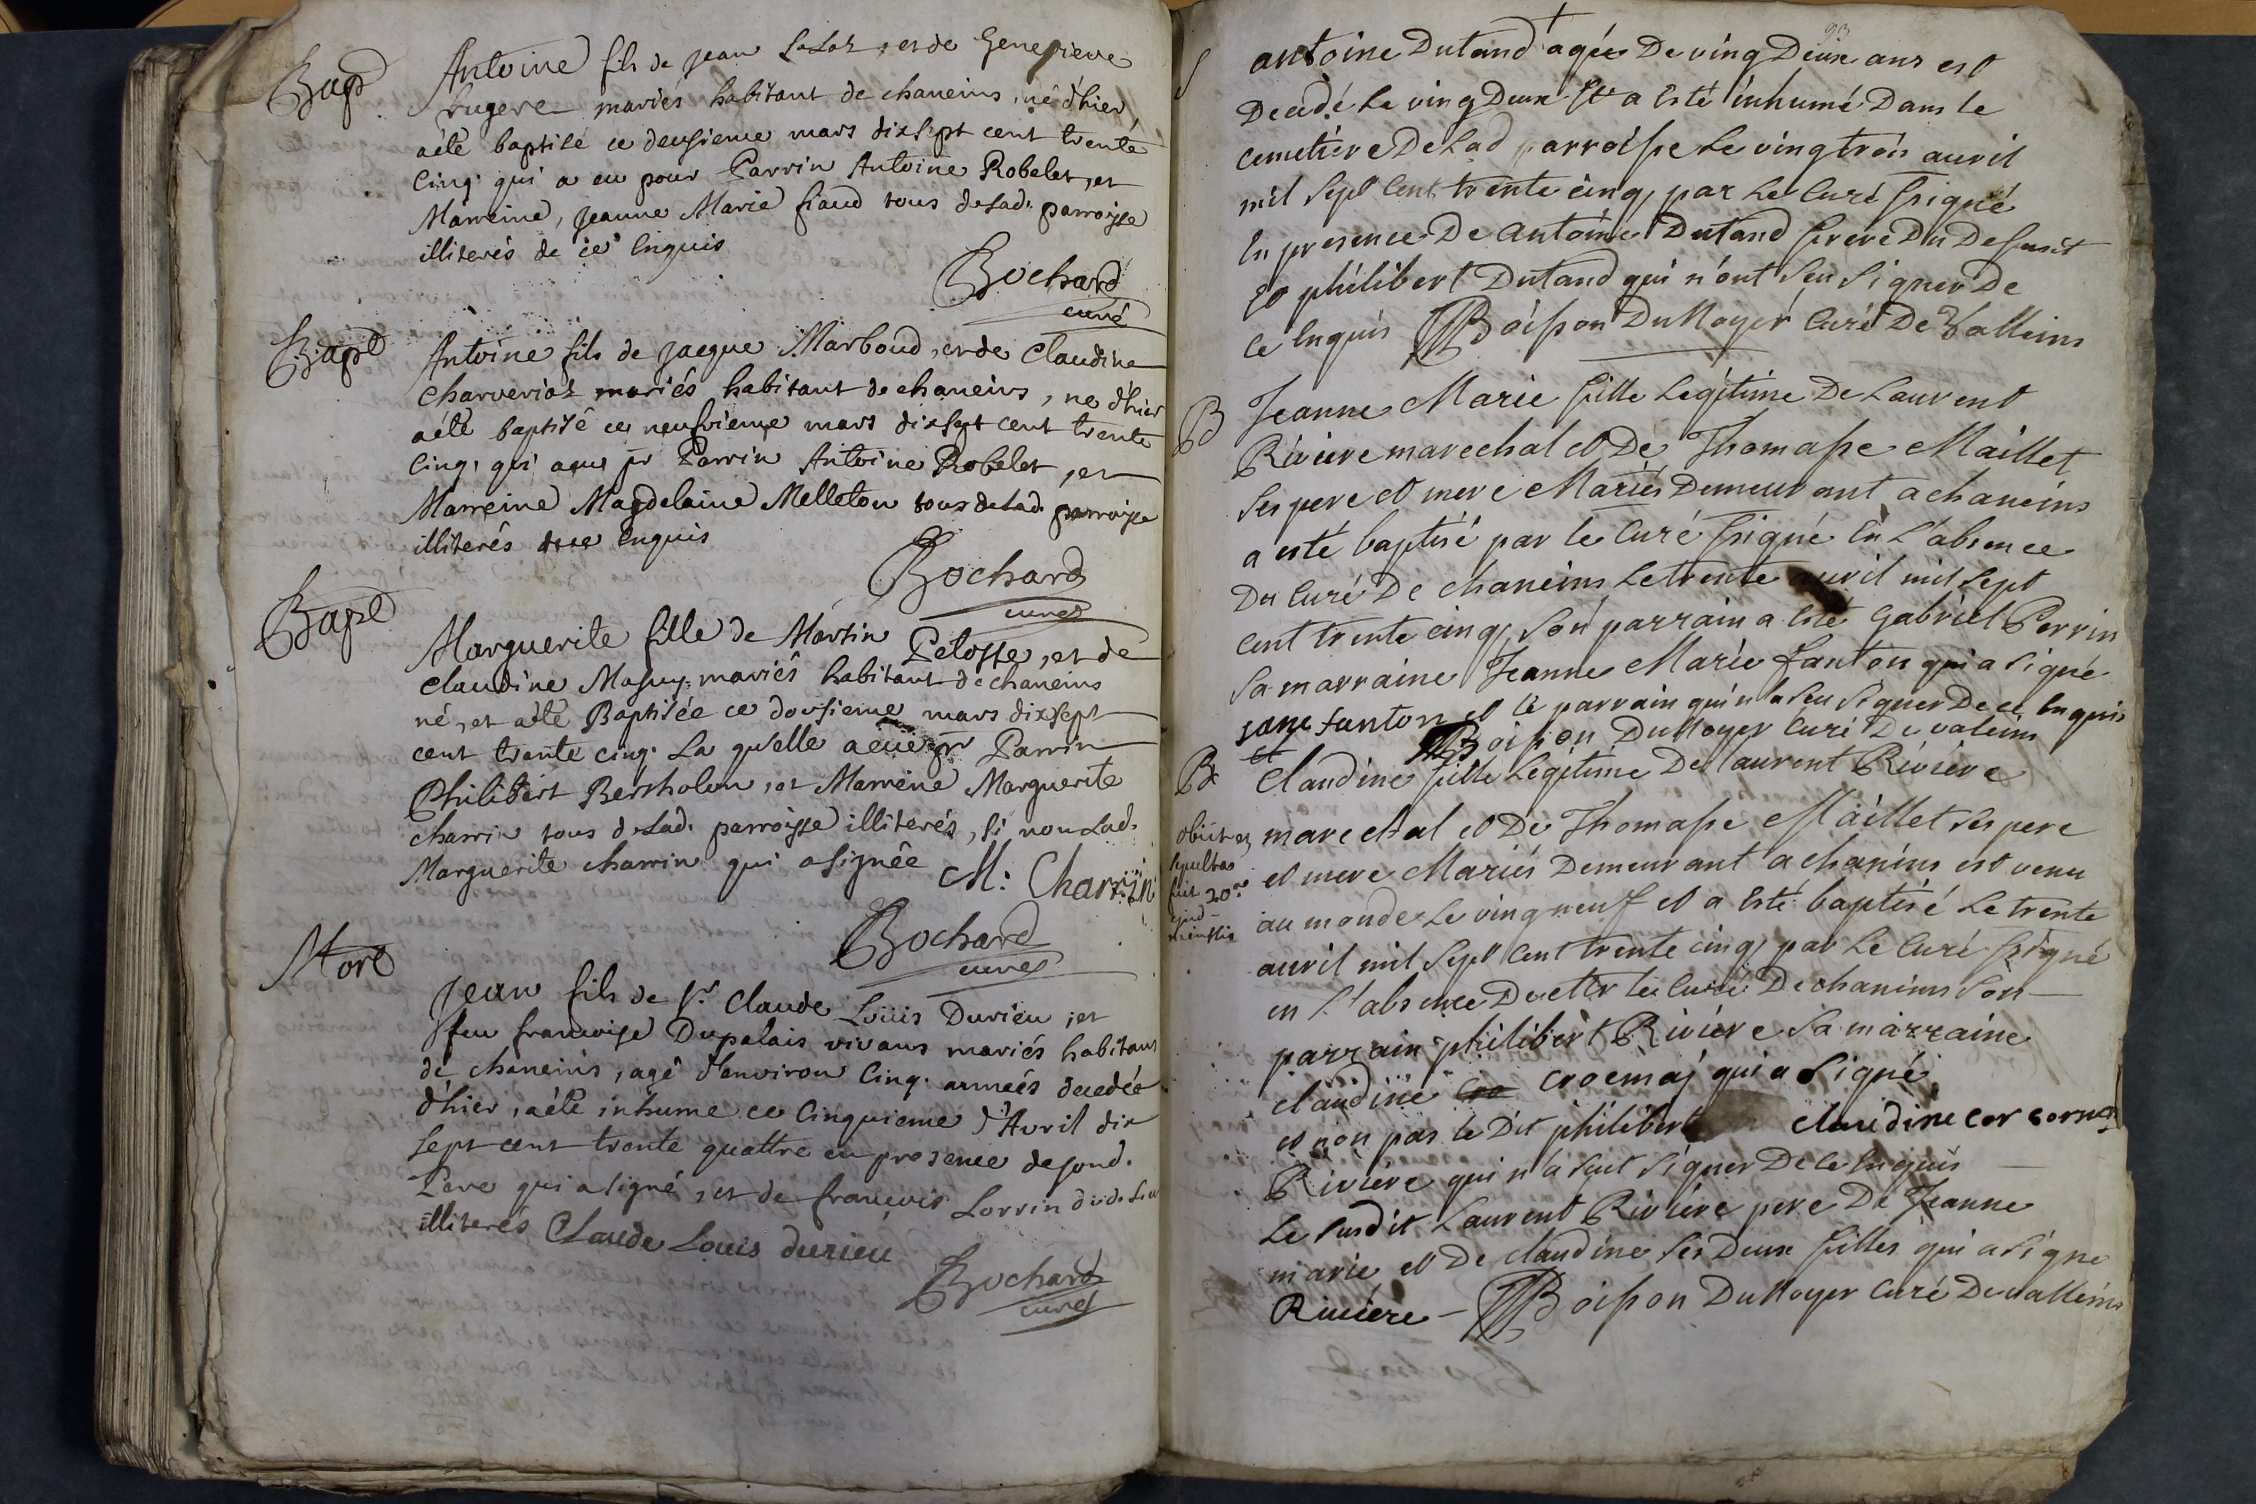 Bapt
Antoine fils de jean Lalot, et de Genevieve
rugere mariés habitant de chaneins, né d'hier,
aété baptisé ce deusieme mars dixsept cent trente
cinq. qui a eu pour Parrin Antoine Robelet, et
Marreine, jeanne Marie fiaud tous de lad. parroisse
illiterés de ce enquis
Bochard
curé
Bapt
Antoine fils de jacque Marboud, et de Claudine
Charveriat mariés habitant de chaneins, ne d'hier
aété baptisé ce neufvieme mars dixsept cent trente
cinq, qui aeu pr Parrin Antoine Robelet, et
Marreine Magdelaine Melleton tous de lad. parroisse
illiterés de ce enquis
Bochard
curé
Bapt
Marguerite fille de Martin Pelosse, et de
Claudine Masuy mariés habitant de chaneins
né, et aété Baptisée ce dousieme mars dixsept
cent trente cinq. La qu'elle aeue pr Parrin
Philibert Bertholon, et Marreine Marguerite
charrin tous de lad. parroisse illiterés, si non lad.
Marguerite charrin qui asignée M: Charrin
Bochard
curé
Mort
Jean fils de Sr. Claude Loüis Durieu, et
feu francoise Dupalais vivans mariés habitans
de chaneins, agé d'environ Cinq. années decedée
d'hier, aété inhume ce Cinquieme d'Avril dix
sept cent trente quattre en presence de sond.
Pere qui asigné, et de francois Lorrin dud. lieu
illiterés Claude Louis durieu
Bochard
curé
93
S
antoine Dutand agée De ving Deux ans est
Decedé Le ving Deux Et a Esté inhumé Dans le
cemetiere De Lad parroisse Le ving trois auril
mil sept Cent trente cinq par Le Curé ssigné
En presence De antoine Dutand frere Du Defunct
et philibert Dutand qui n'ont seu signer De
ce Enquis Boisson Du Noyer Curé De Valleins
B
Jeanne Marie fille Legitime De Laurent
Riviere marechal et De Thomasse Maillet
ses pere et mere Mariés Demeurant a chaneins
a esté baptisé par le Curé ssigné En L'absence
Du Curé De chaneins Le trente auril mil sept
cent trente cinq, son parrain a Esté Gabriel Perrin
sa marraine Jeanne Marie fanton qui a signé
jane fanton et le parrain qui n'a seu signer De ce Enquis
Boisson Du Noyer Curé De valeins
B
et
Claudine fille Legitime De laurent Riviere
obiit et
sepultas
fuit 20a
marechal et De Thomasse Maillet ses pere
et mere Mariés Demeurant a chanins est venu
au monde Le ving neuf et a Esté baptisé Le trente
auril mil sept Cent trente cinq par Le Curé ssigné
en L'absence De Mr le Curé De chanins son
parrain philibert Riviere sa marraine
claudine qui a signé
et non pas le Dit philibert claudine
Riviere qui n'a scut signer De ce Enquis
Le susdit Laurent Riviere pere De Jeanne
marie et De claudine ses Deux filles qui a signe
Riviere – Boisson Du Noyer Curé De valleins